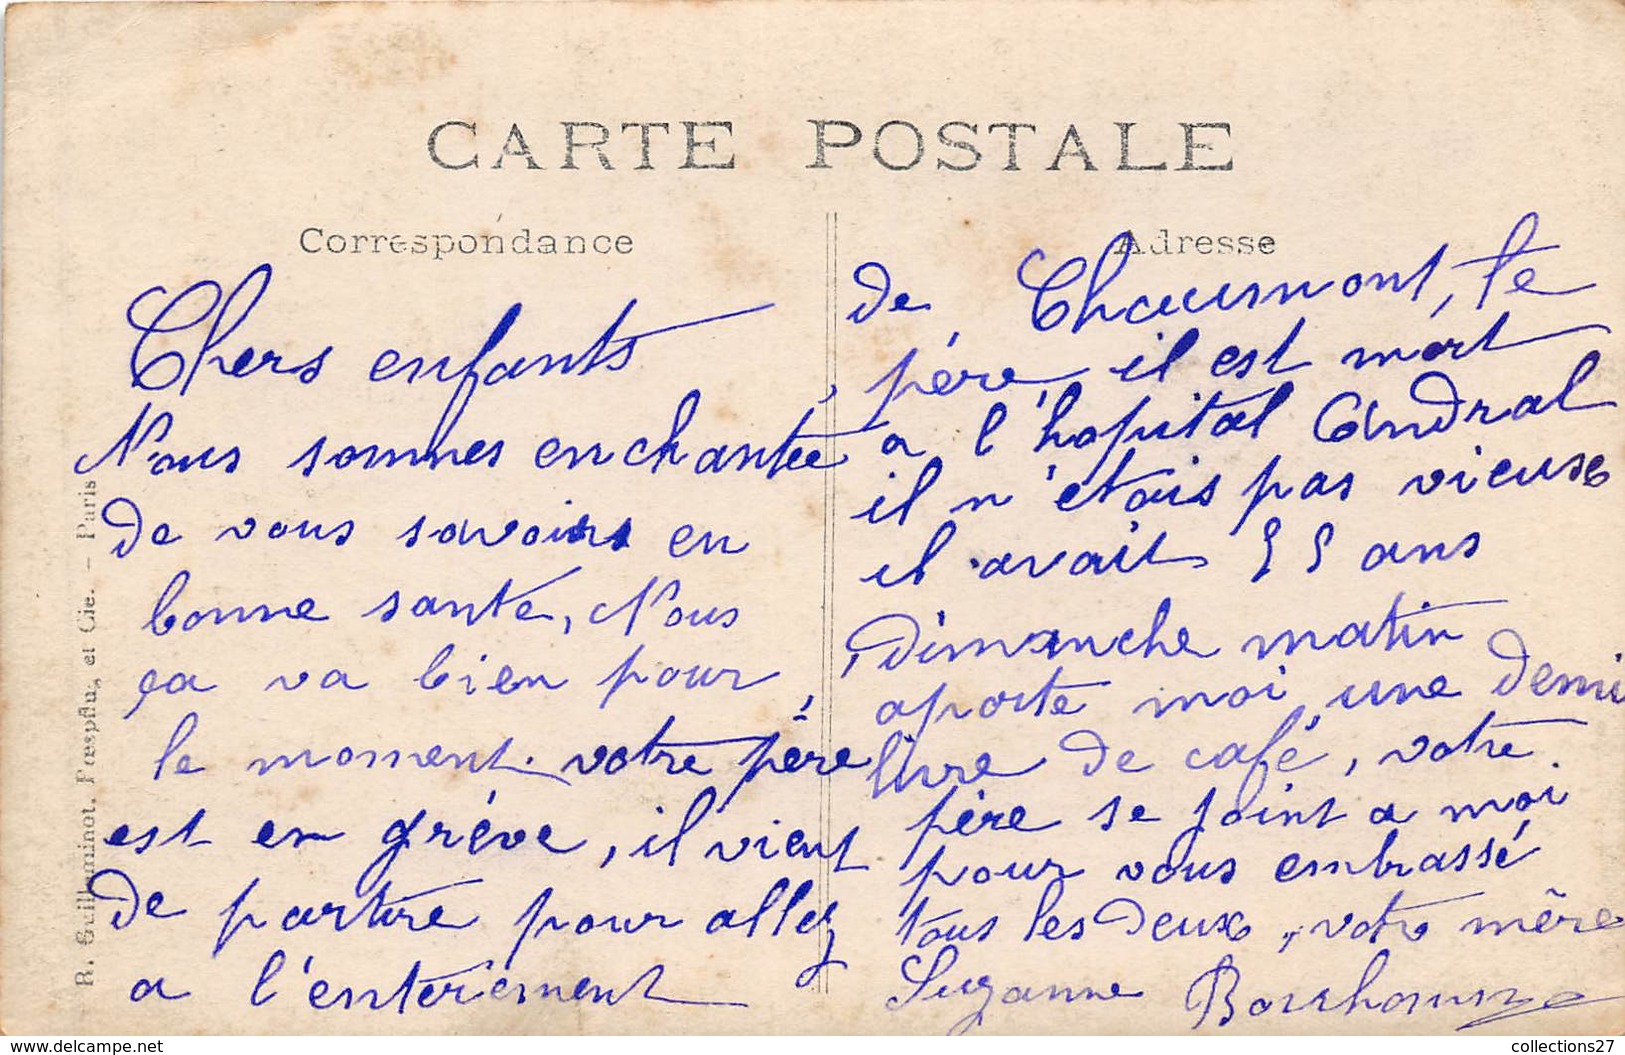 CARTE POSTALE
Correspondance
Chers enfants
Nous sommes enchantée
de vous savoirs en
bonne santé, Nous
ça va bien pour
le moment. votre père
est en grève, il vient
de partire pour allez
a l'enterement
Adresse
de Chaumont, le
père, il est mort
a l'hopital Andral
il n'étais pas vieuse
il avait 55 ans
Dimanche matin
aporte moi une demi
livre de café, votre
père se joint a moi
pour vous embrassé
tous les deux, votre mère
Suzanne
R. Guilleminot, Bœspflug et Cie. - Paris
collections27
www.delcampe.net